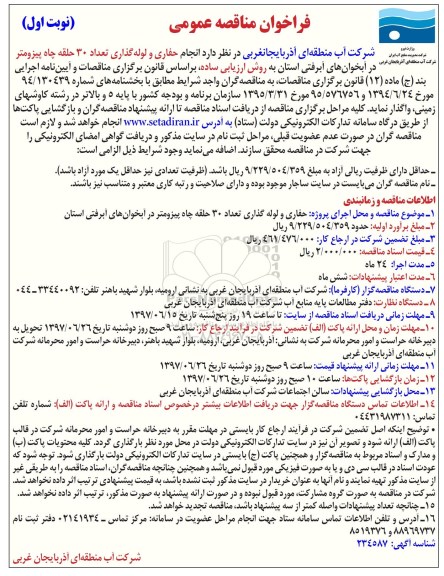 فراخوان مناقصه عمومی
(نوبت اول)
شرکت آب منطقه‌ای آذربایجانغربی در نظر دارد انجام حفاری و لوله‌گذاری تعداد ۳۰ حلقه چاه پیزومتر
در آبخوان‌های آبرفتی استان به روش ارزیابی ساده، براساس قانون برگزاری مناقصات و آیین‌نامه اجرایی
بند (ج) ماده (۱۲) قانون برگزاری مناقصات، به مناقصه‌گران واجد شرایط مطابق با بخشنامه‌های شماره ۹۴/۱۳۰۴۳۹
مورخ ۱۳۹۴/۶/۲۴ و ۹۵/۵۷۶۷۵۶ مورخ ۱۳۹۵/۳/۳۱ سازمان برنامه و بودجه کشور با پایه ۵ و بالاتر در رشته کاوشهای
زمینی، واگذار نماید. کلیه مراحل برگزاری مناقصه از دریافت اسناد مناقصه تا ارائه پیشنهاد مناقصه‌گران و بازگشایی پاکت‌ها
از طریق درگاه سامانه تدارکات الکترونیکی دولت (ستاد) به آدرس www.setadiran.ir انجام خواهد شد و لازم است
مناقصه گران در صورت عدم عضویت قبلی، مراحل ثبت نام در سایت مذکور و دریافت گواهی امضای الکترونیکی را
جهت شرکت در مناقصه محقق سازند. اضافه می‌نماید وجود شرایط ذیل الزامی است:
ـ حداقل دارای ظرفیت ریالی آزاد به مبلغ ۹/۲۲۹/۵۰۴/۳۵۹ ریال باشد. (ظرفیت تعدادی نیز حداقل یک مورد آزاد باشد).
ـ نام مناقصه گران می‌بایست در سایت ساجار موجود بوده و دارای صلاحیت و رتبه کاری معتبر و متناسب نیز باشند.
اطلاعات مناقصه و زمانبندی
۱ـ موضوع مناقصه و محل اجرای پروژه: حفاری و لوله گذاری تعداد ۳۰ حلقه چاه پیزومتر در آبخوان‌های آبرفتی استان
۲ـ مبلغ برآورد اولیه: حدود ۹/۲۲۹/۵۰۴/۳۵۹ ریال
۳ـ مبلغ تضمین شرکت در ارجاع کار: ۴۶۱/۴۷۶/۰۰۰ ریال
۴ـ قیمت اسناد مناقصه: ۲/۰۰۰/۰۰۰ ریال
۵ـ مدت اجرا: ۲۴ ماه
۶ـ مدت اعتبار پیشنهادات: شش ماه
۷ـ دستگاه مناقصه‌گزار (کارفرما): شرکت آب منطقه‌ای آذربایجان غربی به نشانی ارومیه، بلوار شهید باهنر تلفن: ۳۳۴۴۰۰۹۲ـ ۰۴۴
۸ـ دستگاه نظارت: دفتر مطالعات پایه منابع آب شرکت آب منطقه‌ای آذربایجان غربی
۹ـ مهلت زمانی دریافت اسناد مناقصه از سایت: تا ساعت ۱۹ روز پنج‌شنبه تاریخ ۱۳۹۷/۰۶/۱۵
۱۰ـ مهلت زمان و محل ارائه پاکت (الف) تضمین شرکت در فرایند ارجاع کار: ساعت ۹ صبح روز دوشنبه تاریخ ۱۳۹۷/۰۶/۲۶ تحویل به
دبیرخانه حراست و امور محرمانه شرکت به نشانی: آذربایجان غربی، ارومیه، بلوار شهید باهنر، دبیرخانه حراست و امور محرمانه شرکت آب
منطقه‌ای آذربایجان غربی
۱۱ـ مهلت زمانی ارائه پیشنهاد قیمت: ساعت ۹ صبح روز دوشنبه تاریخ ۱۳۹۷/۰۶/۲۶
۱۲ـ زمان بازگشایی پاکت‌ها: ساعت ۱۰ صبح روز دوشنبه تاریخ ۱۳۹۷/۰۶/۲۶
۱۳ـ محل بازگشایی پیشنهادات: سالن اجتماعات شرکت آب منطقه‌ای آذربایجان غربی
۱۴ـ اطلاعات تماس دستگاه مناقصه‌گزار جهت دریافت اطلاعات بیشتر درخصوص اسناد مناقصه و ارائه پاکت (الف): شماره تلفن
تماس: ۰۴۴۳۱۹۸۷۳۱۱
• توضیح اینکه اصل تضمین شرکت در فرآیند ارجاع کار بایستی در مهلت مقرر به دبیرخانه حراست و امور محرمانه شرکت در قالب
پاکت (الف) ارائه شود و تصویر آن نیز در سایت تدارکات الکترونیکی دولت در محل مورد نظر بارگذاری گردد. کلیه محتویات پاکت (ب)
و مدارک و اسناد مربوط به مناقصه‌گزار و همچنین پاکت (ج) بایستی در سایت تدارکات الکترونیکی دولت بارگذاری شود. توجه شود که
عودت اسناد در قالب سی دی و یا به صورت فیزیکی مورد قبول نمی‌باشد و همچنین چنانچه مناقصه‌گران، اسناد مناقصه را به طریقی غیر
از سایت مذکور تهیه نمایند و نام آنها به عنوان خریدار در سایت مذکور ثبت نشده باشد، به قیمت پیشنهادی ترتیب اثر داده نخواهد شد.
شرکت در مناقصه به صورت گروه مشارکت، مورد قبول نبوده و در صورت ارائه پیشنهاد به صورت مذکور، ترتیب اثر داده نخواهد شد.
۱۵ـ چنانچه تعداد پیشنهادات واصله کمتر از سه پیشنهاد باشد، مناقصه تجدید خواهد شد.
۱۶ـ آدرس و تلفن اطلاعات تماس سامانه ستاد جهت انجام مراحل عضویت در سامانه: مرکز تماس ـ ۰۲۱۴۱۹۳۴ دفتر ثبت نام
۸۸۹۶۹۷۳۷ و ۸۵۱۹۳۷۶
شناسه آگهی: ۲۳۴۵۸۷
شرکت آب منطقه‌ای آذربایجان غربی